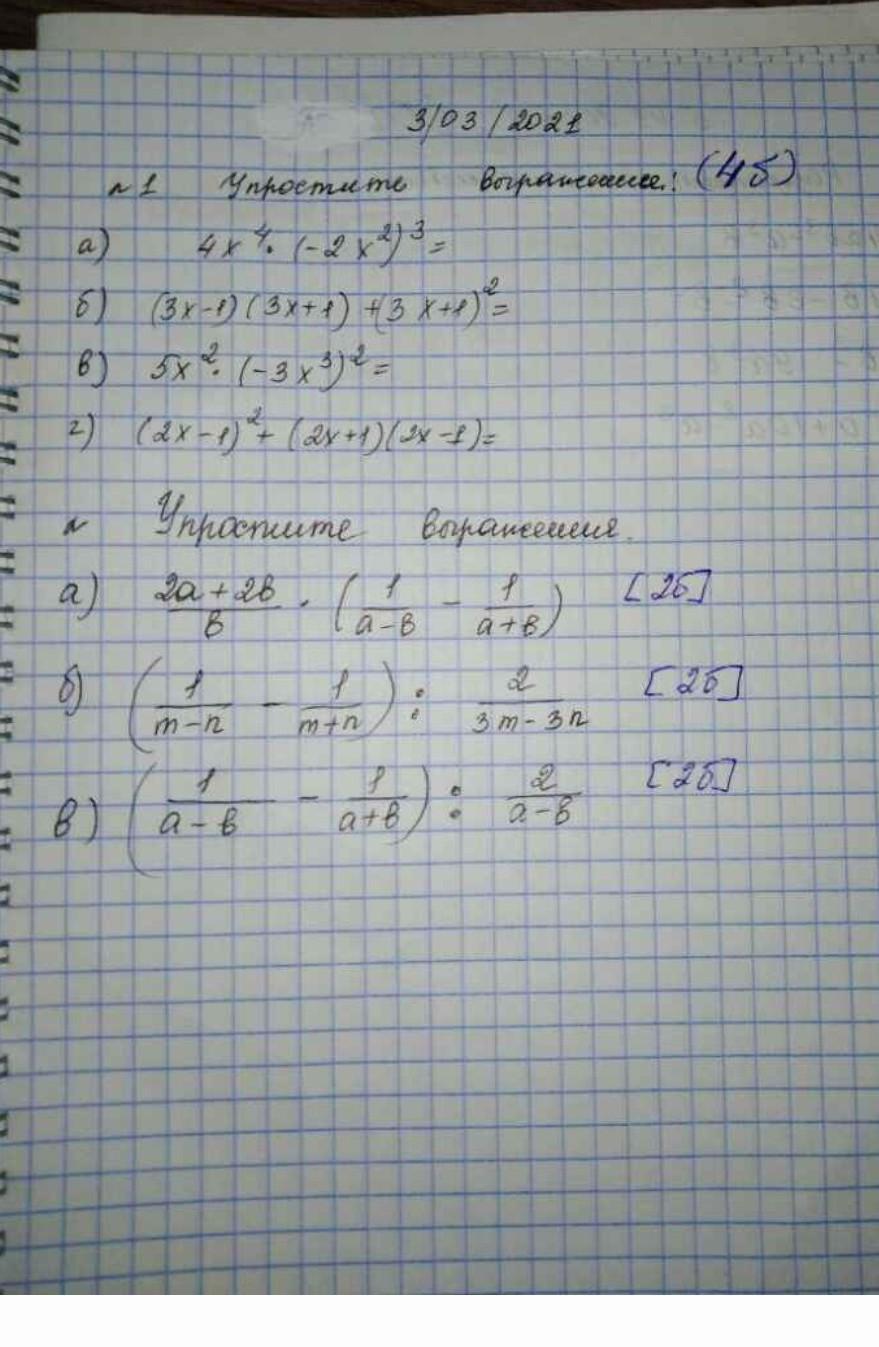 3/03/2021
№1 Упростите выражение: (4б)
а) 4x⁴·(-2x²)³=
б) (3x-1)(3x+1)+(3x+1)²=
в) 5x²·(-3x³)²=
г) (2x-1)²+(2x+1)(2x-1)=
№ Упростите выражения.
а) (2a+2b)/b · (1/(a-b) - 1/(a+b)) [2б]
б) (1/(m-n) - 1/(m+n)) : 2/(3m-3n) [2б]
в) (1/(a-b) - 1/(a+b)) : 2/(a-b) [2б]